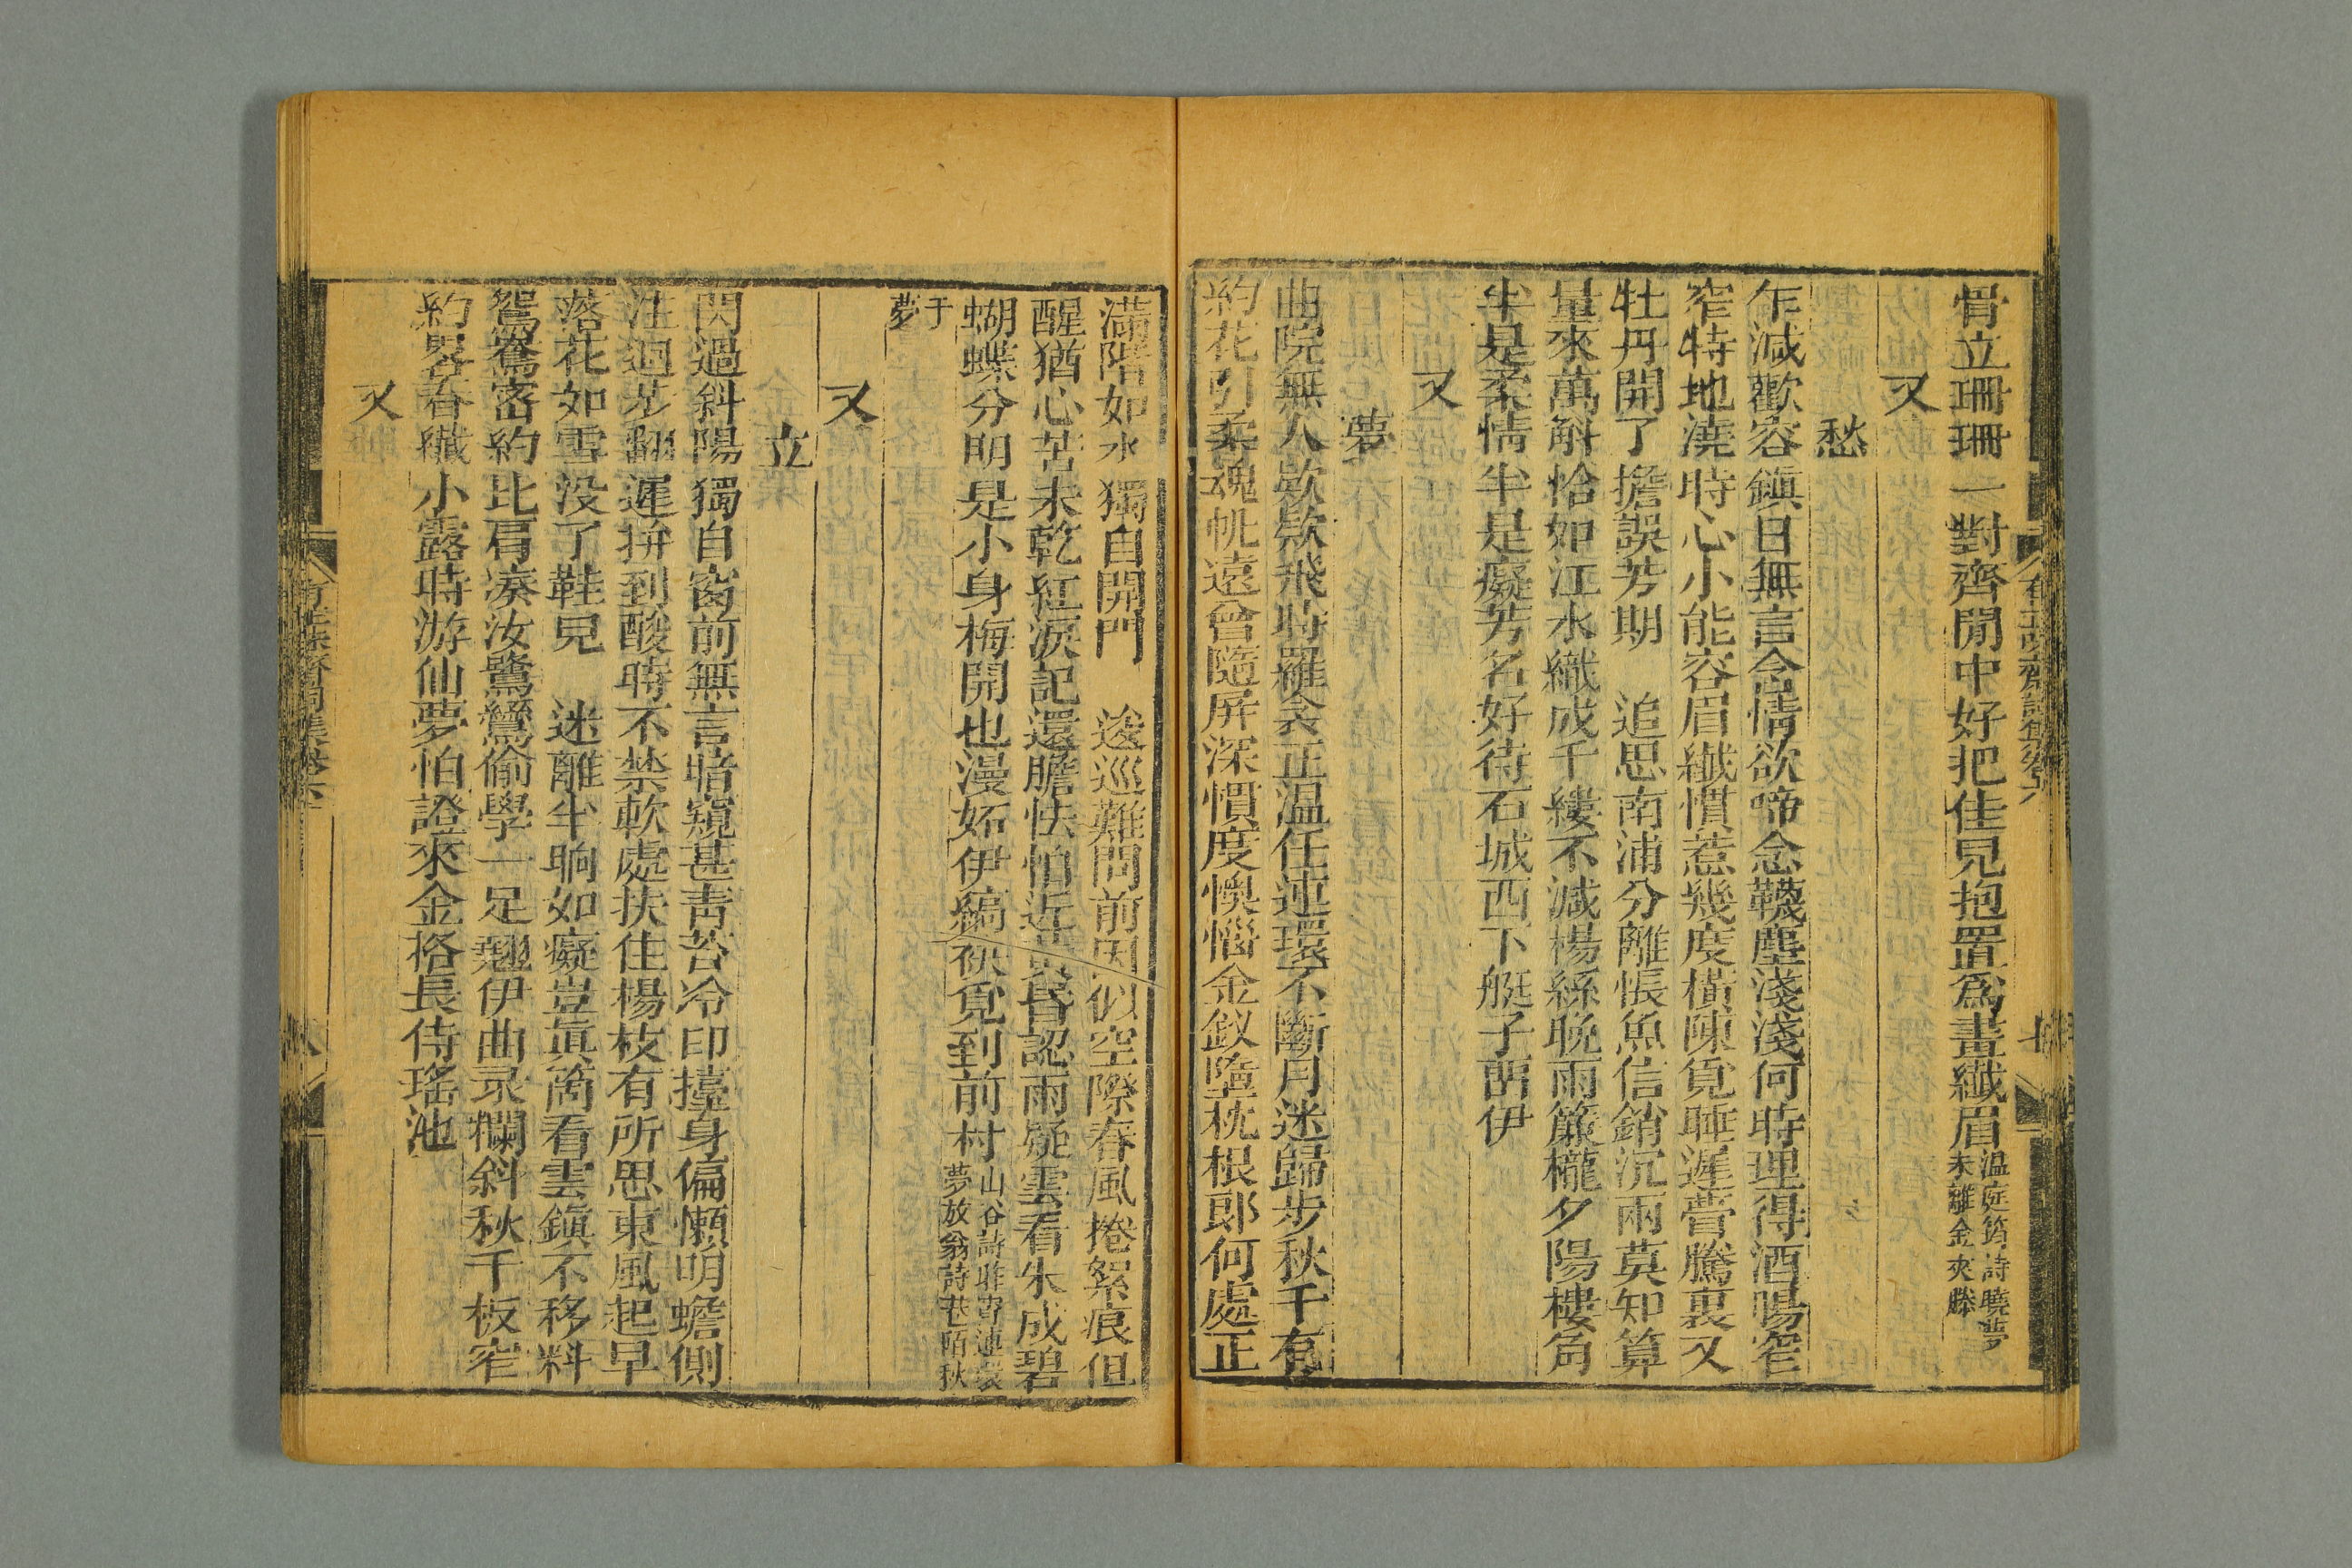 骨立珊珊一對齊閒中好把佳兒抱置爲畫纎眉溫庭筠詩曉夢未離金夾膝
又
愁
乍減歡容鎭日無言含情欲啼念韈塵淺淺何時理得酒腸窄
窄特地澆時心小能容眉纎慣惹幾度橫陳覓睡遲瞢騰裏又
牡丹開了擔誤芳期　追思南浦分離悵魚信銷沉兩莫知算
量來萬斛恰如江水織成千縷不減楊絲晚雨簾櫳夕陽樓角
半是柔情半是癡芳名好待石城西下艇子訪伊
又
夢
曲院無人款款飛時羅衾正溫任連環不斷月迷歸步秋千有
約花引柔魂帆遠曾隨屏深慣度懊惱金釵墮枕根郎何處正
滿階如水獨自開門　逡巡難問前因似空際春風捲絮痕但
醒猶心苦未乾紅淚記還膽怯怕近黃昏認雨疑雲看朱成碧
蝴蝶分明是小身梅開也漫妬伊縞袂覓到前村山谷詩昨宵連環夢放翁詩巷陌秋
于夢
又
立
閃過斜陽獨自窗前無言暗窺甚靑苔冷印擡身偏懶明蟾側
注迴步翻遲拚到酸時不禁軟處扶住楊枝有所思東風起早
落花如雪没了鞋兒　迷離半晌如癡豈眞箇看雲鎭不移料
鴛鴦密約比肩凑汝鷺鷥偷學一足翹伊曲彔欄斜秋千板窄
約畧春纎小露時游仙夢怕證來金格長侍瑤池
又